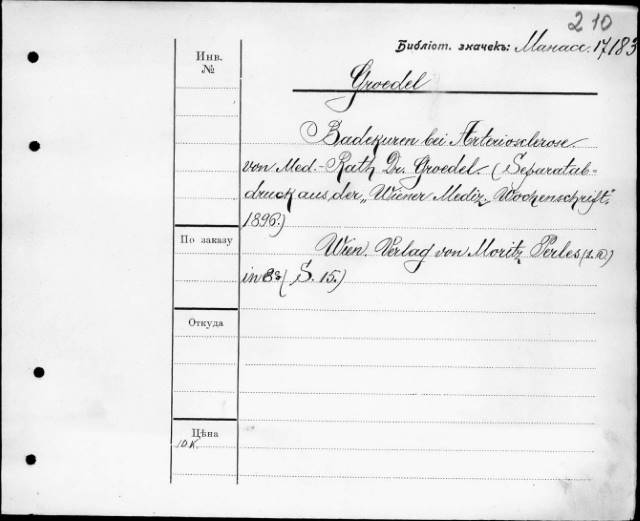 210
Инв.
№
Библіот. значекъ: Манасс. 17/183
Groedel
Badekuren bei Arteriosclerose.
von Med.-Rath Dr. Groedel. (Separatab-
druck aus der „Wiener Mediz. Wochenschrift"
1896.)
По заказу
Wien. Verlag von Moritz Perles (s. a)
in 8º (S. 15.)
Откуда
Цѣна
10 К.